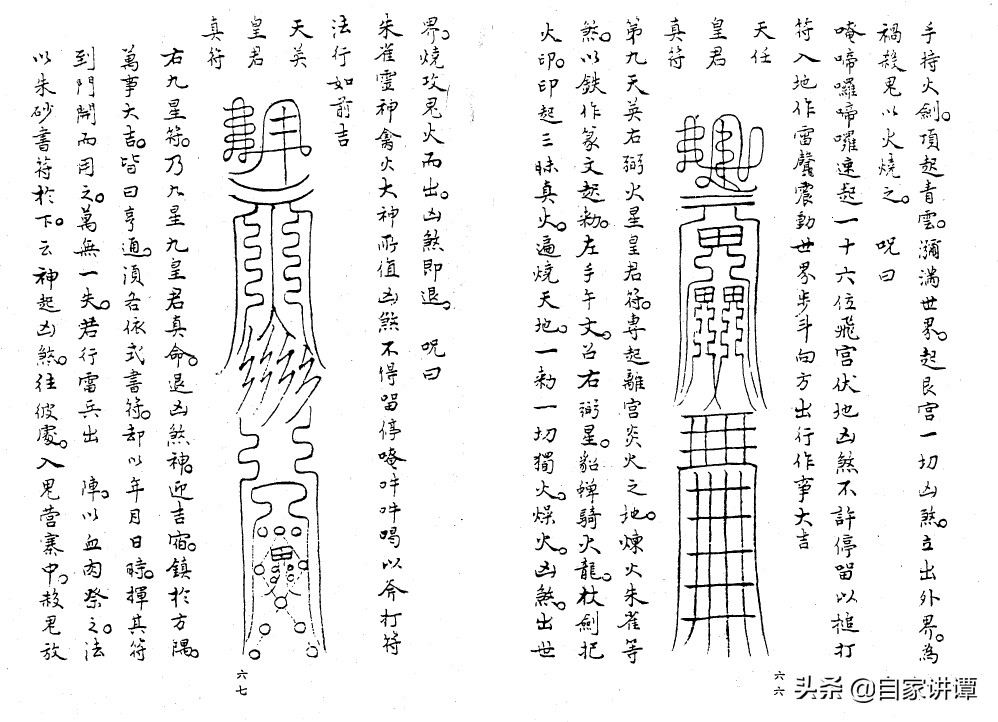 手持火劍。頂起青雲。瀰滿世界。起艮宮一切凶煞。立出外界。為
禍殺鬼以火燒之。 咒曰
唵啼囉啼囉速起一十六位飛宮伏地凶煞不許停留以槌打
符入地作雷聲震動世界步斗向方出行作事大吉
天任
皇君
真符
第九天英右弼火星皇君符。專起離宮炎火之地。煉火朱雀等
煞。以鉄作篆文起勅。左手午文。召右弼星。貂蟬騎火龍。杖劍把
火印。印起三昧真火。逼燒天地。一勅一切獨火。燥火。凶煞。出世
六六
界。燒攻鬼火而出。凶煞即退。 咒曰
朱雀靈神禽火大神所值凶煞不得留停唵吽吽喝以斧打符
法行如前吉
天英
皇君
真符
右九星符。乃九星九皇君真命。退凶煞神。迎吉宿。鎮於方隅。
萬事大吉。皆曰亨通。須各依式書符。却以年月日時。揮其符
到門開而用之。萬無一失。若行雷兵出 陣。以血肉祭之。法
以朱砂書符於下。云神起凶煞。往彼處。入鬼营寨中。殺鬼放
六七
头条 @自家讲谭